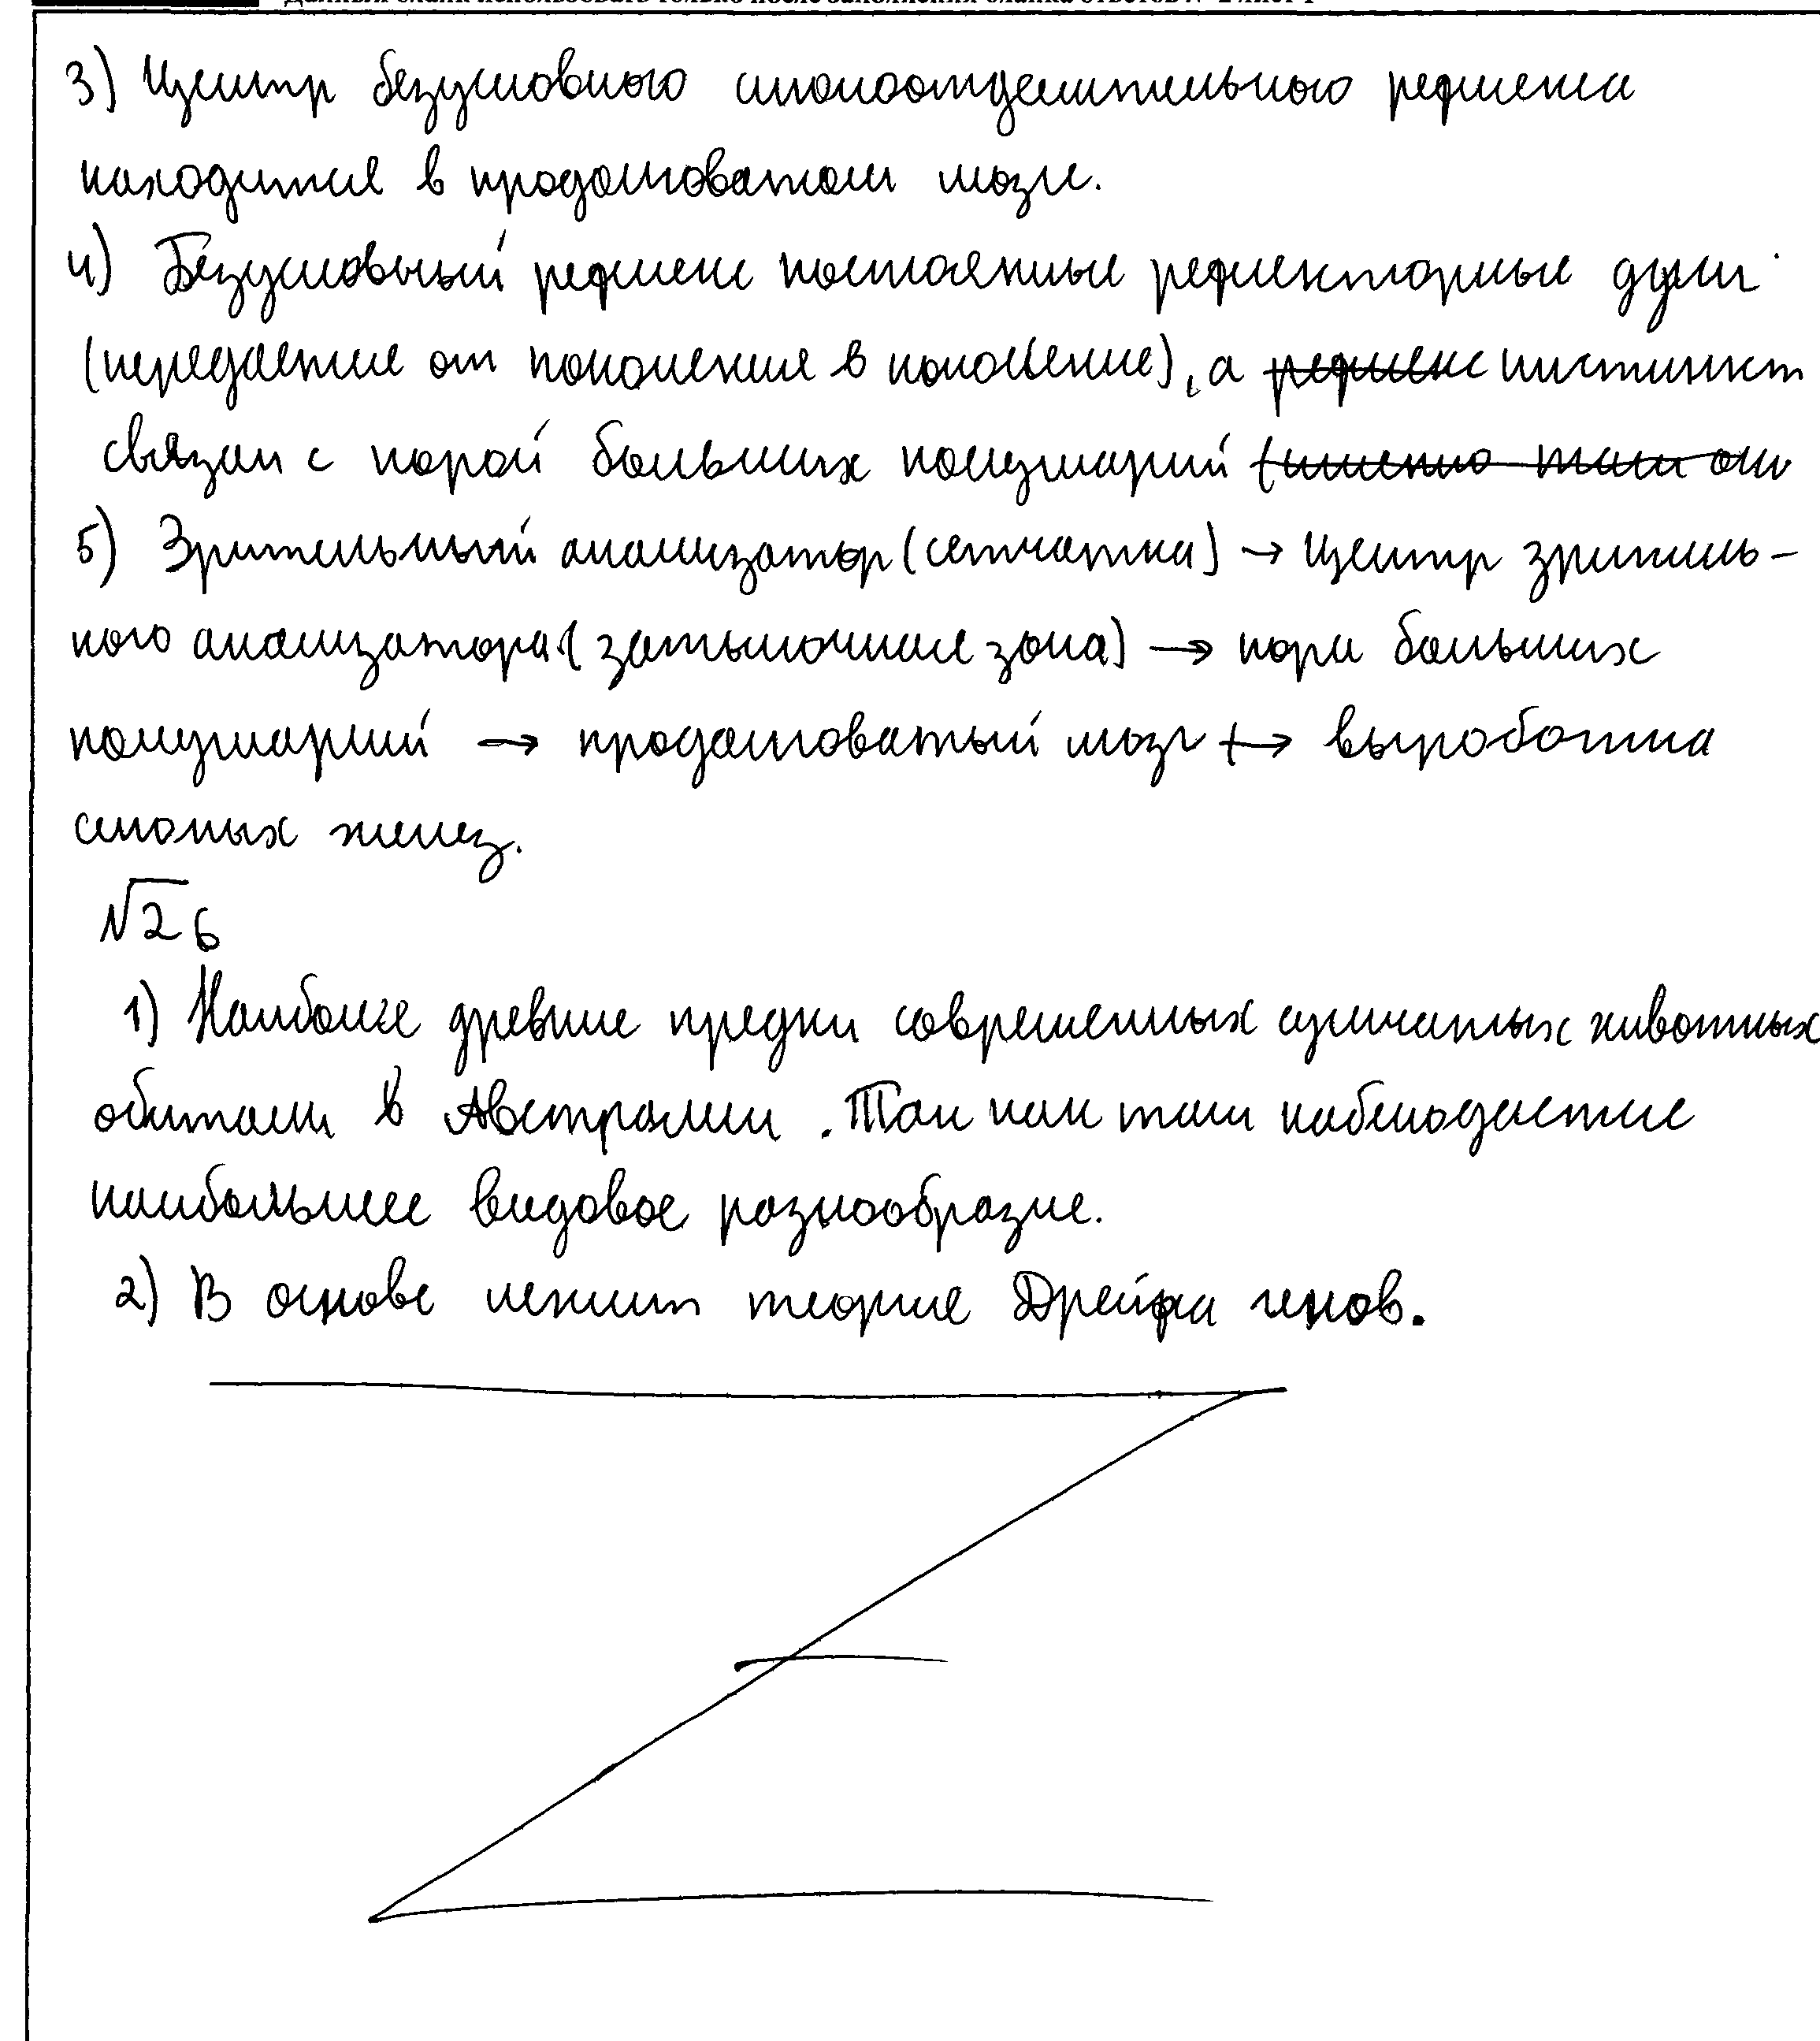 3) Центр безусловного слюноотделительного рефлекса
находится в продолговатом мозге.
4) Безусловный рефлекс постоянные рефлекторные дуги
(передается от поколения в поколение), а рефлекс инстинкт
связан с корой больших полушарий (именно там он
5) Зрительный анализатор (сетчатка) → центр зритель-
ного анализатора (затылочная зона) → кора больших
полушарий → продолговатый мозг → выработка
слюных желез.
№26
1) Наиболее древние предки современных сумчатых животных
обитали в Австралии. Так как там наблюдается
наибольшее видовое разнообразие.
2) В основе лежит теория Дрейфа генов.